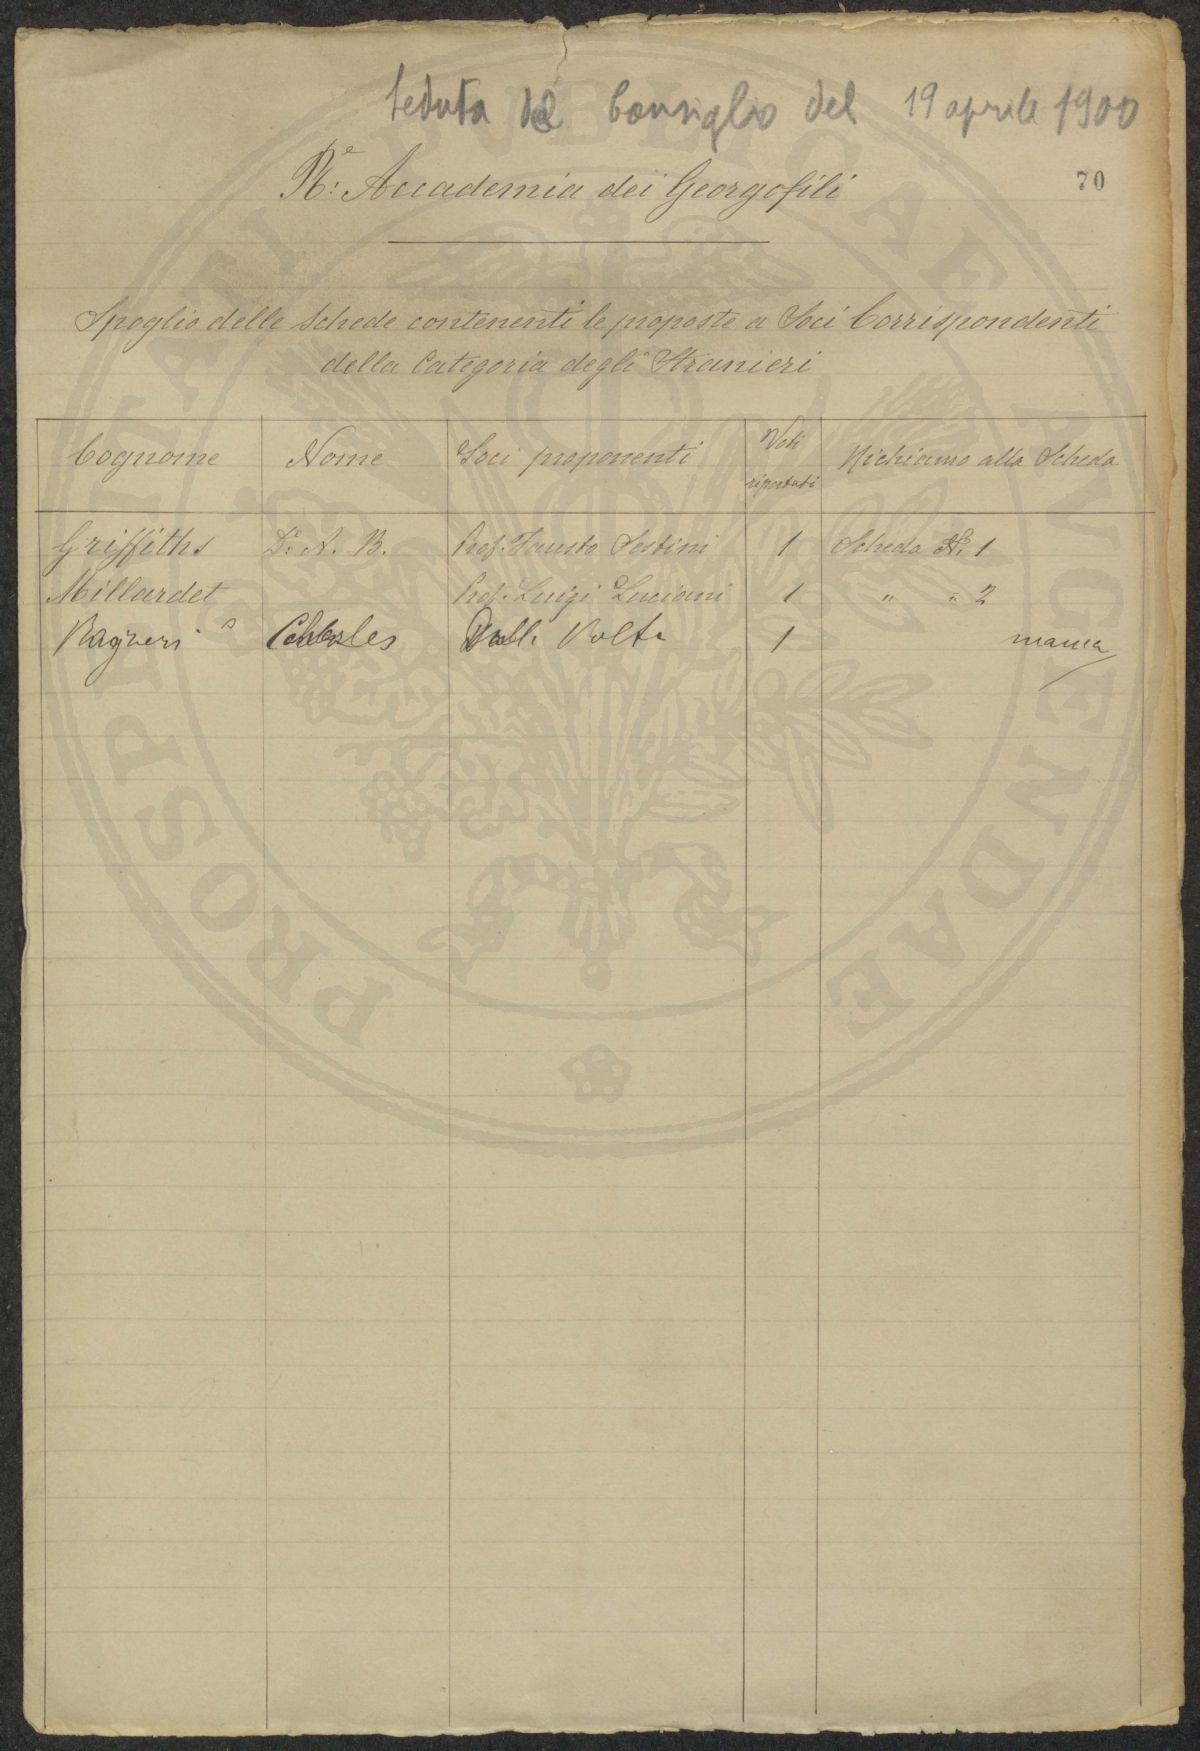 Seduta del Consiglio del 19 aprile 1900
Re: Accademia dei Georgofili
70
Spoglio delle Schede contenenti le proposte a Soci Corrispondenti
della Categoria degli Stranieri
Cognome Nome Soci proponenti Voti riportati Richiamo alla Scheda
Griffiths Dr. A. B. Prof. Fausto Sestini 1 Scheda N. 1
Millardet Prof. Luigi Luciani 1 " " 2
Charles Dalla Volta 1 manca
PROSPERITATI PUBLICAE AUGENDAE